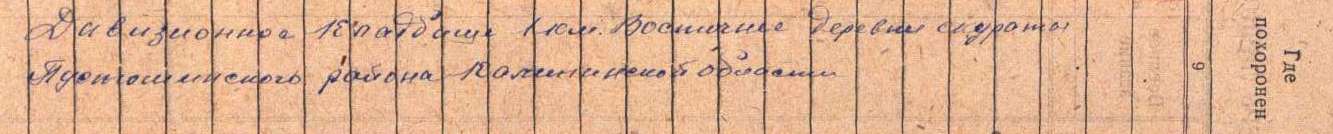 Дивизионное кладбище 1 км. Восточнее деревни скураты
Пустошинского района Калининской области
9
Где
похоронен